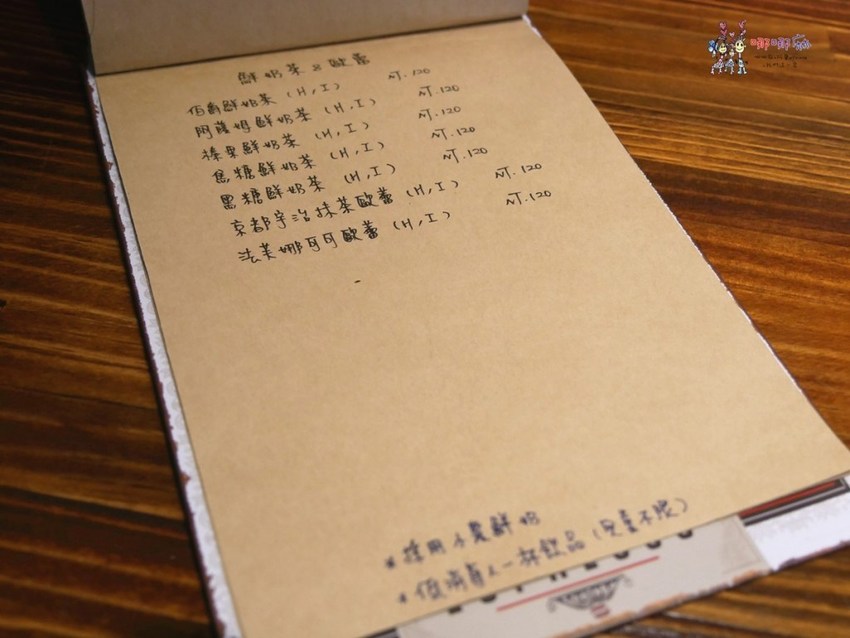 鮮奶茶 & 歐蕾
伯爵鮮奶茶 (H,I) NT.120
阿薩姆鮮奶茶 (H,I) NT.120
榛果鮮奶茶 (H,I) NT.120
焦糖鮮奶茶 (H,I) NT.120
黑糖鮮奶茶 (H,I) NT.120
京都宇治抹茶歐蕾 (H,I) NT.120
法芙娜可可歐蕾 (H,I)
* 採用小農鮮奶
* 低消每人一杯飲品 (兒童不限)